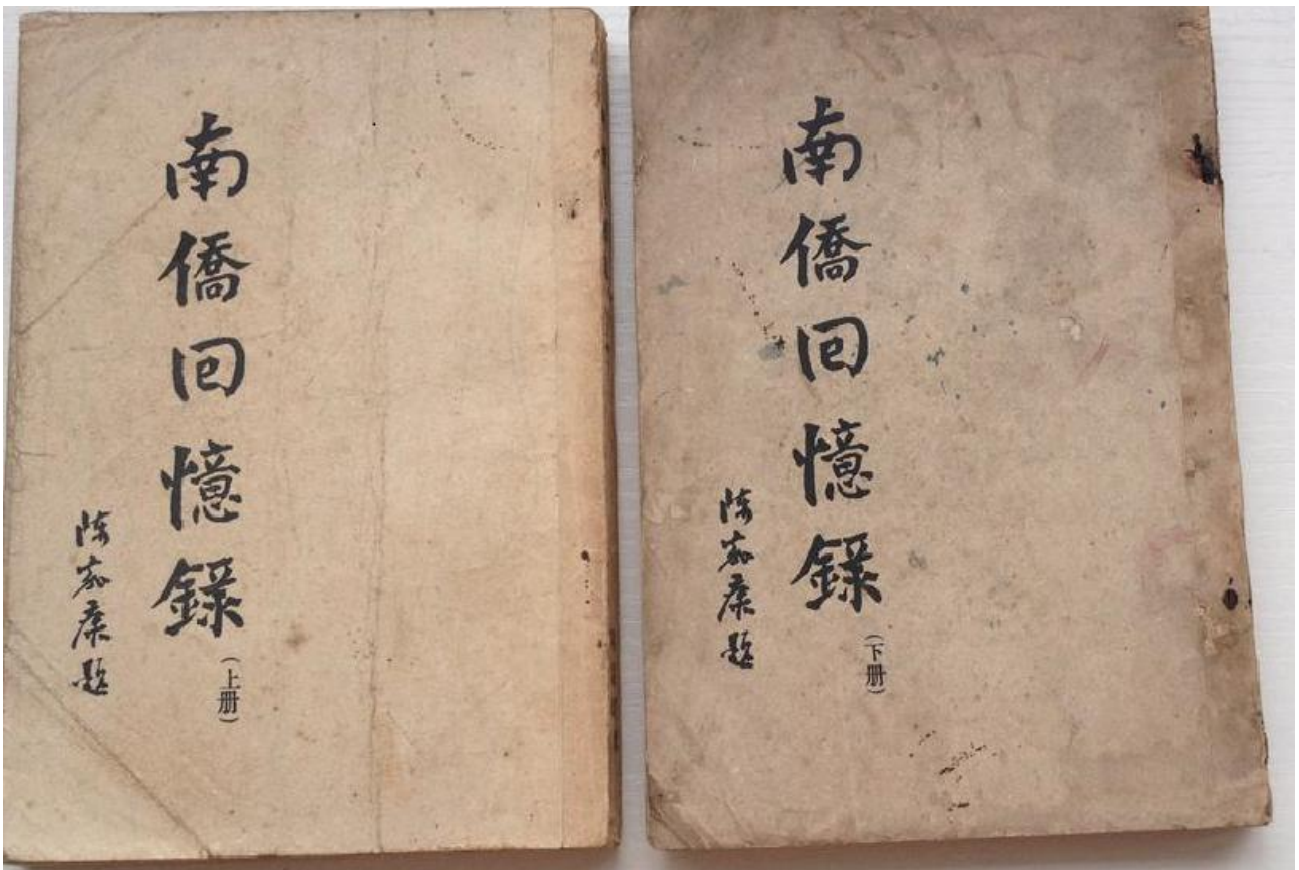 南僑回憶錄
(上册)
陈嘉庚題
南僑回憶錄
(下册)
陈嘉庚題